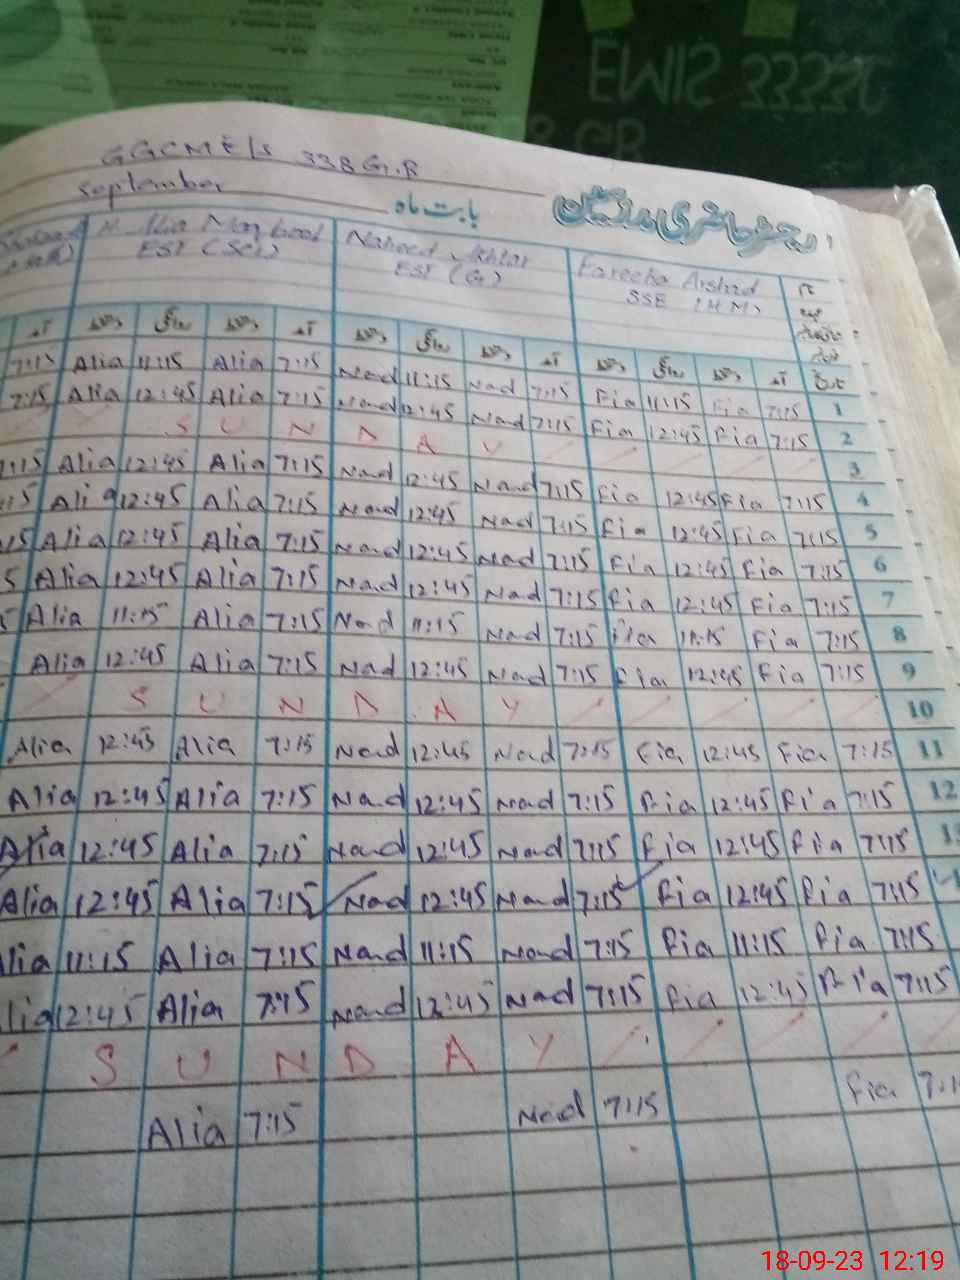 EMIS 3333
GB
GGCME/S 338 G.B
September
بابت ماہ
رجسٹر حاضری مدرسین
Alia Maqbool Naheed Akhtar Fareeha Arshad نام
EST (Sci) EST (G) SSE (H.M) عہدہ
آمد دستخط روانگی دستخط آمد دستخط روانگی دستخط آمد دستخط روانگی دستخط آمد تاریخ
7:15 Alia 11:15 Alia 7:15 Nad 11:15 Nad 7:15 Fia 11:15 Fia 7:15 1
7:15 Alia 12:45 Alia 7:15 Nad 12:45 Nad 7:15 Fia 12:45 Fia 7:15 2
S U N D A Y 3
7:15 Alia 12:45 Alia 7:15 Nad 12:45 Nad 7:15 Fia 12:45 Fia 7:15 4
Alia 12:45 Alia 7:15 Nad 12:45 Nad 7:15 Fia 12:45 Fia 7:15 5
15 Alia 12:45 Alia 7:15 Nad 12:45 Nad 7:15 Fia 12:45 Fia 7:15 6
5 Alia 12:45 Alia 7:15 Nad 12:45 Nad 7:15 Fia 12:45 Fia 7:15 7
5 Alia 11:15 Alia 7:15 Nad 11:15 Nad 7:15 Fia 11:15 Fia 7:15 8
Alia 12:45 Alia 7:15 Nad 12:45 Nad 7:15 Fia 12:45 Fia 7:15 9
S U N D A Y 10
Alia 12:45 Alia 7:15 Nad 12:45 Nad 7:15 Fia 12:45 Fia 7:15 11
Alia 12:45 Alia 7:15 Nad 12:45 Nad 7:15 Fia 12:45 Fia 7:15 12
Alia 12:45 Alia 7:15 Nad 12:45 Nad 7:15 Fia 12:45 Fia 7:15 13
Alia 12:45 Alia 7:15 Nad 12:45 Nad 7:15 Fia 12:45 Fia 7:15
lia 11:15 Alia 7:15 Nad 11:15 Nad 7:15 Fia 11:15 Fia 7:15
lia 12:45 Alia 7:15 Nad 12:45 Nad 7:15 Fia 12:45 Fia 7:15
S U N D A Y
Alia 7:15 Nad 7:15 Fia 7:1
18-09-23 12:19